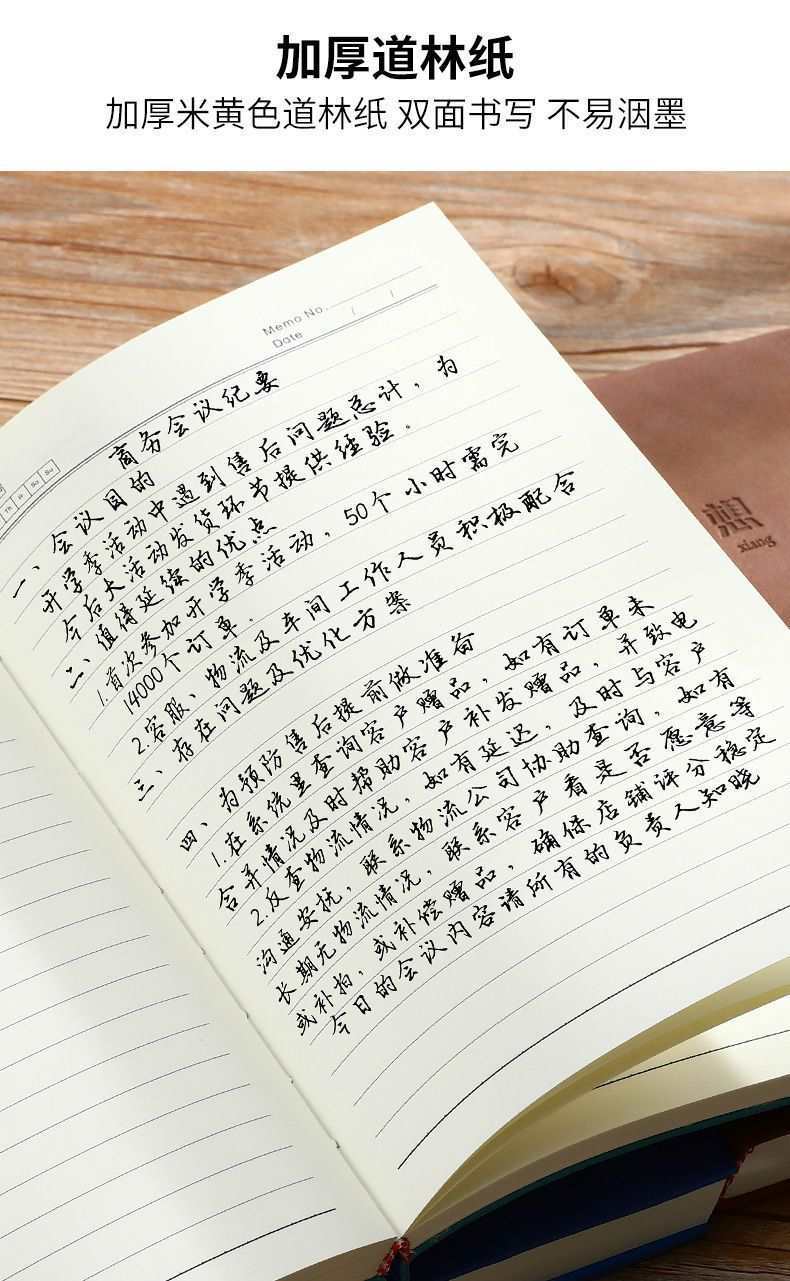 加厚道林纸
加厚米黄色道林纸 双面书写 不易洇墨
Memo No.
Date / /
商务会议纪要
一、会议目的
开学季活动中遇到售后问题总计，为
今后大活动发货环节提供经验。
二、值得延续的优点
1.首次参加开学季活动，50个小时需完
14000个订单.
2.客服、物流及车间工作人员积极配合
三、存在问题及优化方案
四、为预防售后提前做准备
1.在系统里查询客户赠品，如有订单未
合并情况及时帮助客户补发赠品，并致电
2.反查物流情况，如有延迟，及时与客户
沟通安抚，联系物流公司协助查询，如有
长期无物流情况，联系客户看是否愿意等
或补拍，或补偿赠品，确保店铺评分稳定
今日的会议内容请所有的负责人知晓
Th Fr Sa Su
xiang